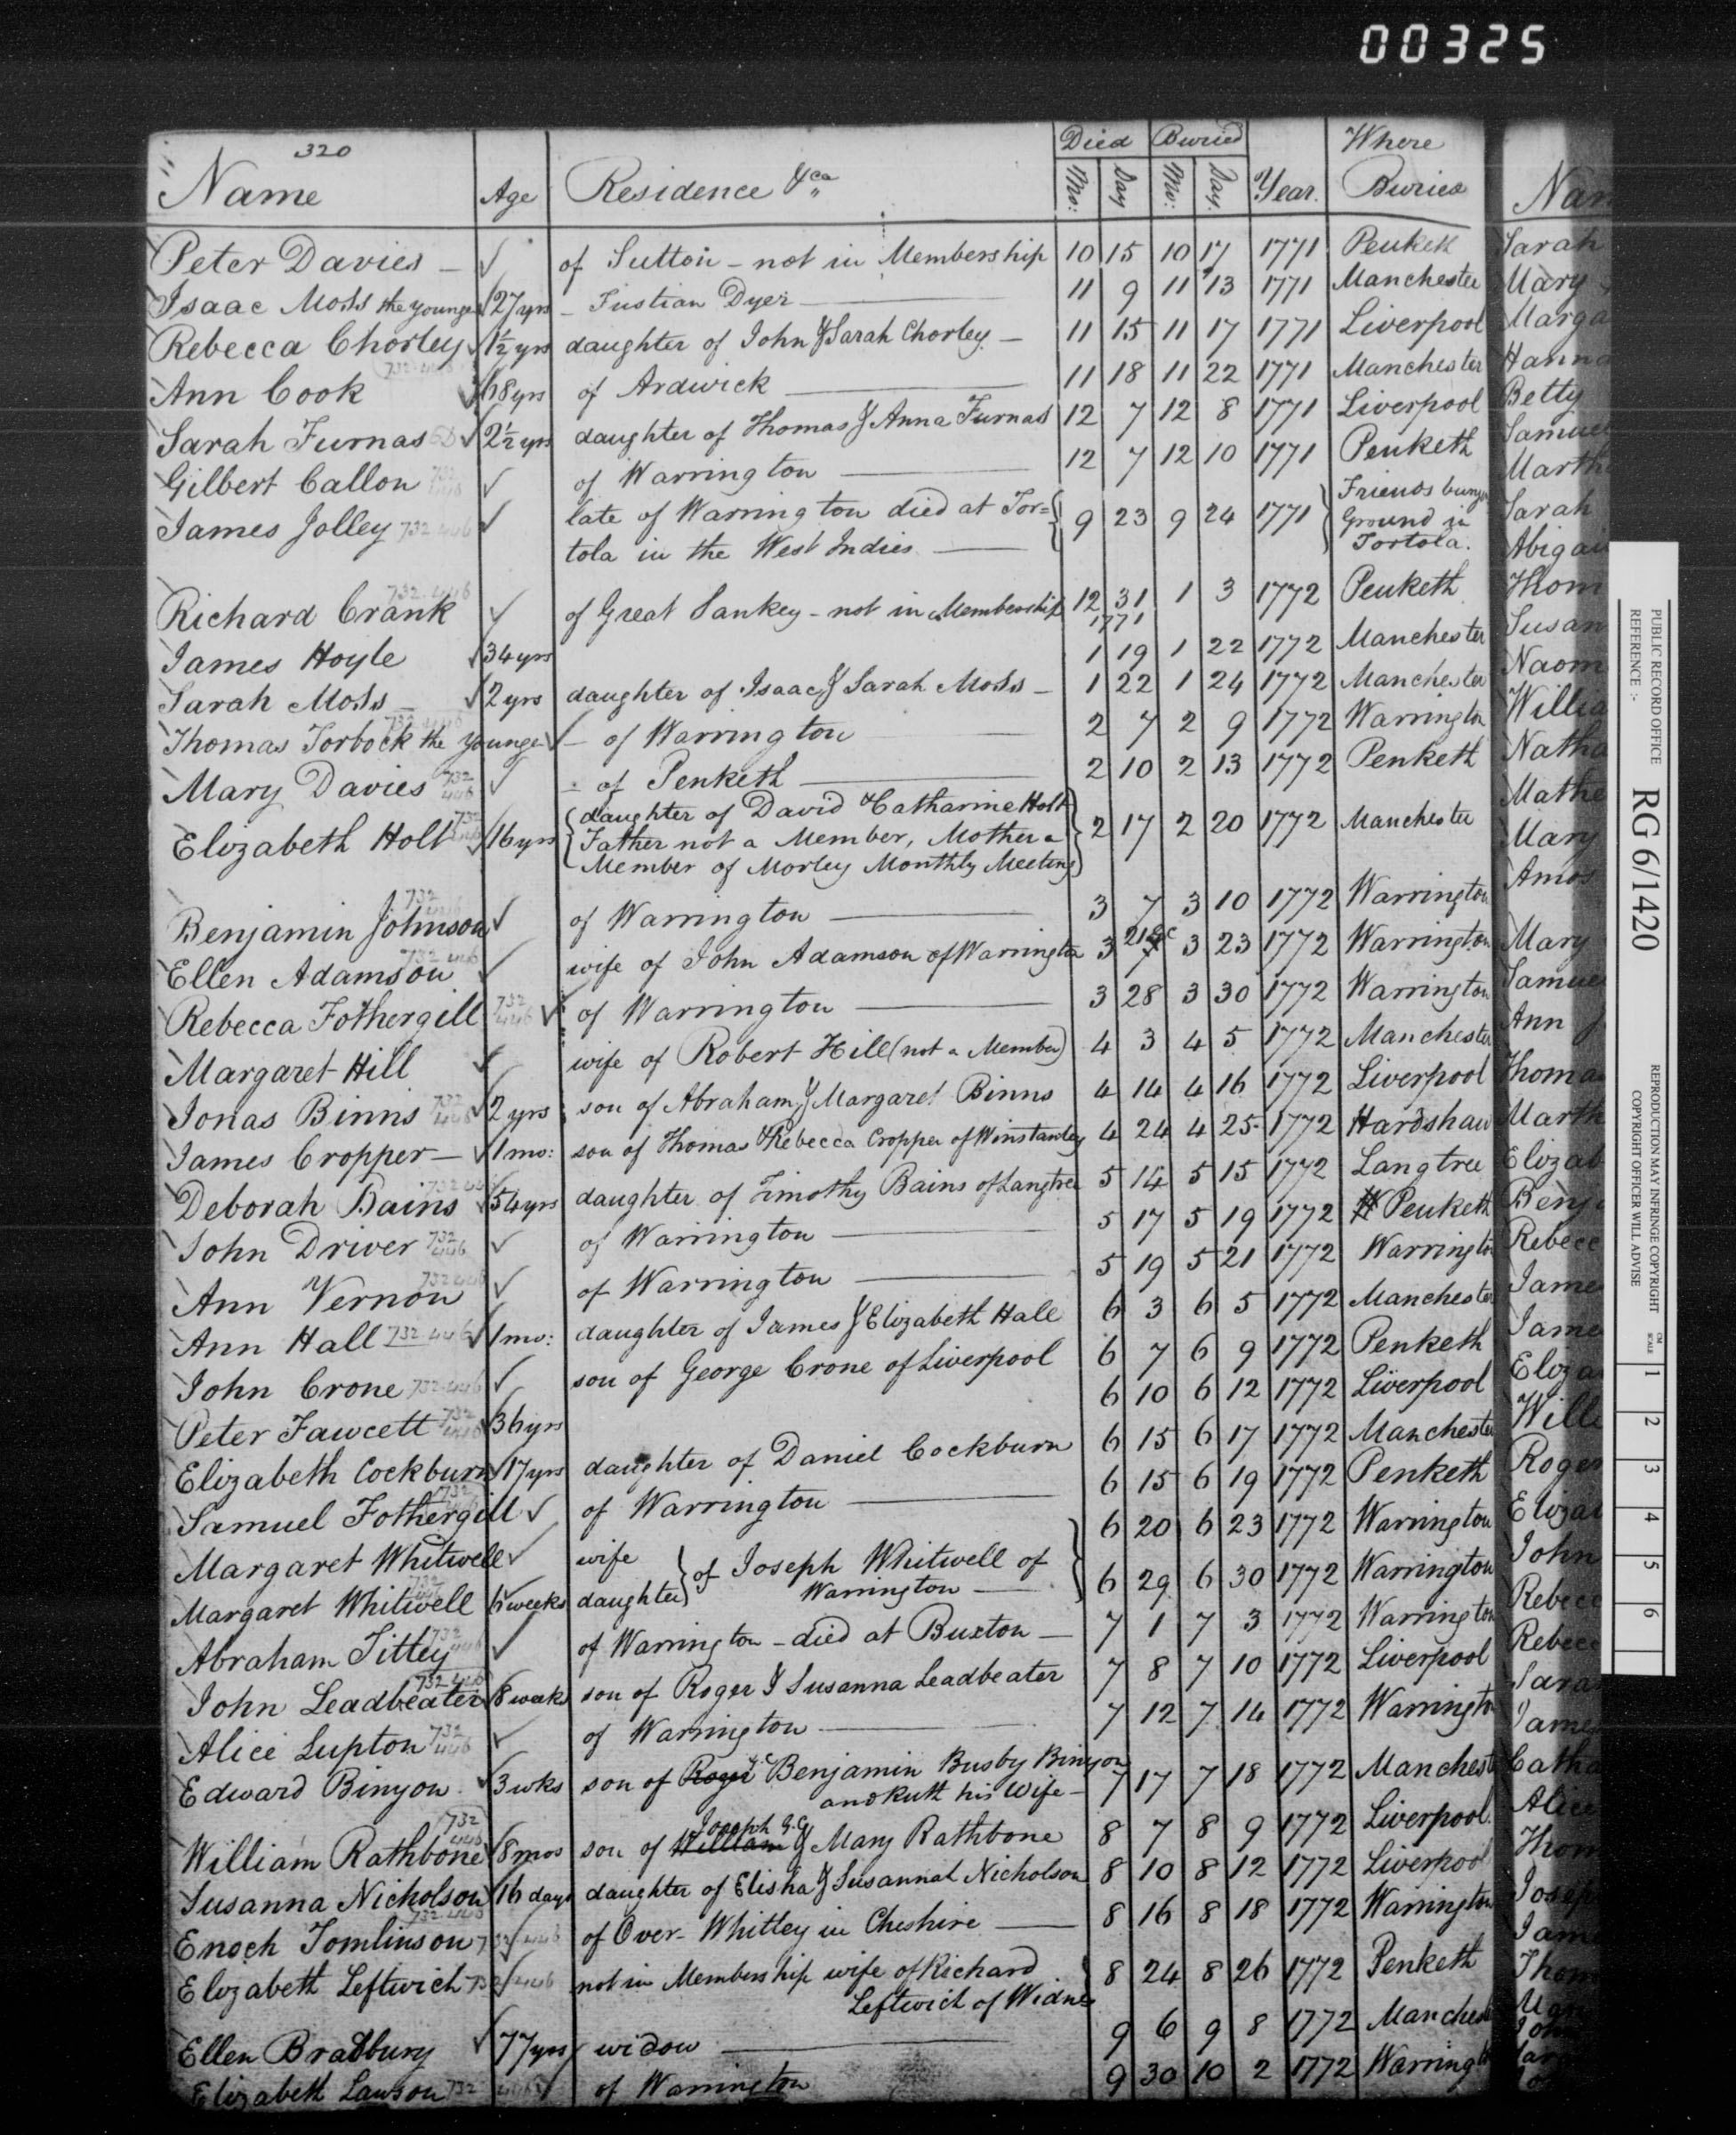 00325
320
Name Age Residence &ca Died Buried Year. Where Buried
Mo: Day Mo: Day.
Peter Davies – of Sutton – not in Membership 10 15 10 17 1771 Penketh
Isaac Moss the younger 27 yrs – Fustian Dyer 11 9 11 13 1771 Manchester
Rebecca Chorley 1½ yrs daughter of John & Sarah Chorley – 11 15 11 17 1771 Liverpool
Ann Cook 68 yrs of Ardwick 11 18 11 22 1771 Manchester
Sarah Furnas 2½ yrs daughter of Thomas & Anna Furnas 12 7 12 8 1771 Liverpool
Gilbert Callon 732 446 of Warrington 12 7 12 10 1771 Penketh
James Jolley 732 446 late of Warrington died at Tor= 9 23 9 24 1771 Friends burying
Ground in
tola in the West Indies Tortola.
Richard Crank 732.446 of Great Sankey – not in Membership 12 31 1 3 1772 Penketh
1771
James Hoyle 34 yrs 1 19 1 22 1772 Manchester
Sarah Moss 2 yrs daughter of Isaac & Sarah Moss – 1 22 1 24 1772 Manchester
Thomas Torbock the younger 732 446 – of Warrington 2 7 2 9 1772 Warrington
Mary Davies 732 446 – of Penketh 2 10 2 13 1772 Penketh
Elizabeth Holt 732 446 16 yrs daughter of David & Catharine Holt
Father not a Member, Mother a 2 17 2 20 1772 Manchester
Member of Morley Monthly Meeting
Benjamin Johnson 732 446 of Warrington 3 7 3 10 1772 Warrington
Ellen Adamson 732 446 wife of John Adamson of Warrington 3 21 3 23 1772 Warrington
Rebecca Fothergill 732 446 of Warrington 3 28 3 30 1772 Warrington
Margaret Hill wife of Robert Hill (not a Member) 4 3 4 5 1772 Manchester
Jonas Binns 732 446 2 yrs son of Abraham, & Margaret Binns 4 14 4 16 1772 Liverpool
James Cropper – 1 mo: son of Thomas & Rebecca Cropper of Winstanley 4 24 4 25 1772 Hardshaw
Deborah Bains 732 446 54 yrs daughter of Timothy Bains of Langtree 5 14 5 15 1772 Langtree
John Driver 732 446 of Warrington 5 17 5 19 1772 Penketh
Ann Vernon 732 446 of Warrington 5 19 5 21 1772 Warrington
Ann Hall 732 446 1 mo: daughter of James & Elizabeth Hall 6 3 6 5 1772 Manchester
John Crone 732.446 son of George Crone of Liverpool 6 7 6 9 1772 Penketh
Peter Fawcett 732 446 36 yrs 6 10 6 12 1772 Liverpool
Elizabeth Cockburn 17 yrs daughter of Daniel Cockburn 6 15 6 17 1772 Manchester
Samuel Fothergill 732 446 of Warrington 6 15 6 19 1772 Penketh
Margaret Whitwell wife of Joseph Whitwell of 6 20 6 23 1772 Warrington
Margaret Whitwell 732 weeks daughter Warrington 6 29 6 30 1772 Warrington
Abraham Tittey 732 446 of Warrington – died at Buxton – 7 1 7 3 1772 Warrington
John Leadbeater 732 446 8 weeks son of Roger & Susanna Leadbeater 7 8 7 10 1772 Liverpool
Alice Lupton 732 446 of Warrington 7 12 7 14 1772 Warrington
Edward Binyon 3 wks son of Roger Benjamin Busby Binyon 7 17 7 18 1772 Manchest
and Ruth his Wife –
Joseph G.C
William Rathbone 732 446 8 mos son of William & Mary Rathbone 8 7 8 9 1772 Liverpool.
Susanna Nicholson 16 days daughter of Elisha & Susannah Nicholson 8 10 8 12 1772 Liverpool
Enoch Tomlinson 732 446 of Over-Whitley in Cheshire 8 16 8 18 1772 Warrington
Elizabeth Leftwich 732 446 not in Membership wife of Richard 8 24 8 26 1772 Penketh
Leftwich of Widnes
Ellen Bradbury 77 yrs widow 9 6 9 8 1772 Manches
Elizabeth Lawson 732 446 of Warrington 9 30 10 2 1772 Warringt
Nam
Sarah
Mary
Marga
Hanna
Betty
Samuel
Marth
Sarah
Abigai
Thom
Susan
Naom
Willia
Natha
Mathe
Mary
Amos
Mary
Samue
Ann
Thomas
Marth
Elizab
Benj
Rebecc
Jame
Jame
Eliza
Will
Roger
Eliza
John
Rebecc
Rebecc
Sara
Jame
Catha
Alice
Thom
Josep
Jam
Thom
PUBLIC RECORD OFFICE
REFERENCE :-
RG 6/1420
REPRODUCTION MAY INFRINGE COPYRIGHT
COPYRIGHT OFFICER WILL ADVISE
CM
SCALE
1 2 3 4 5 6